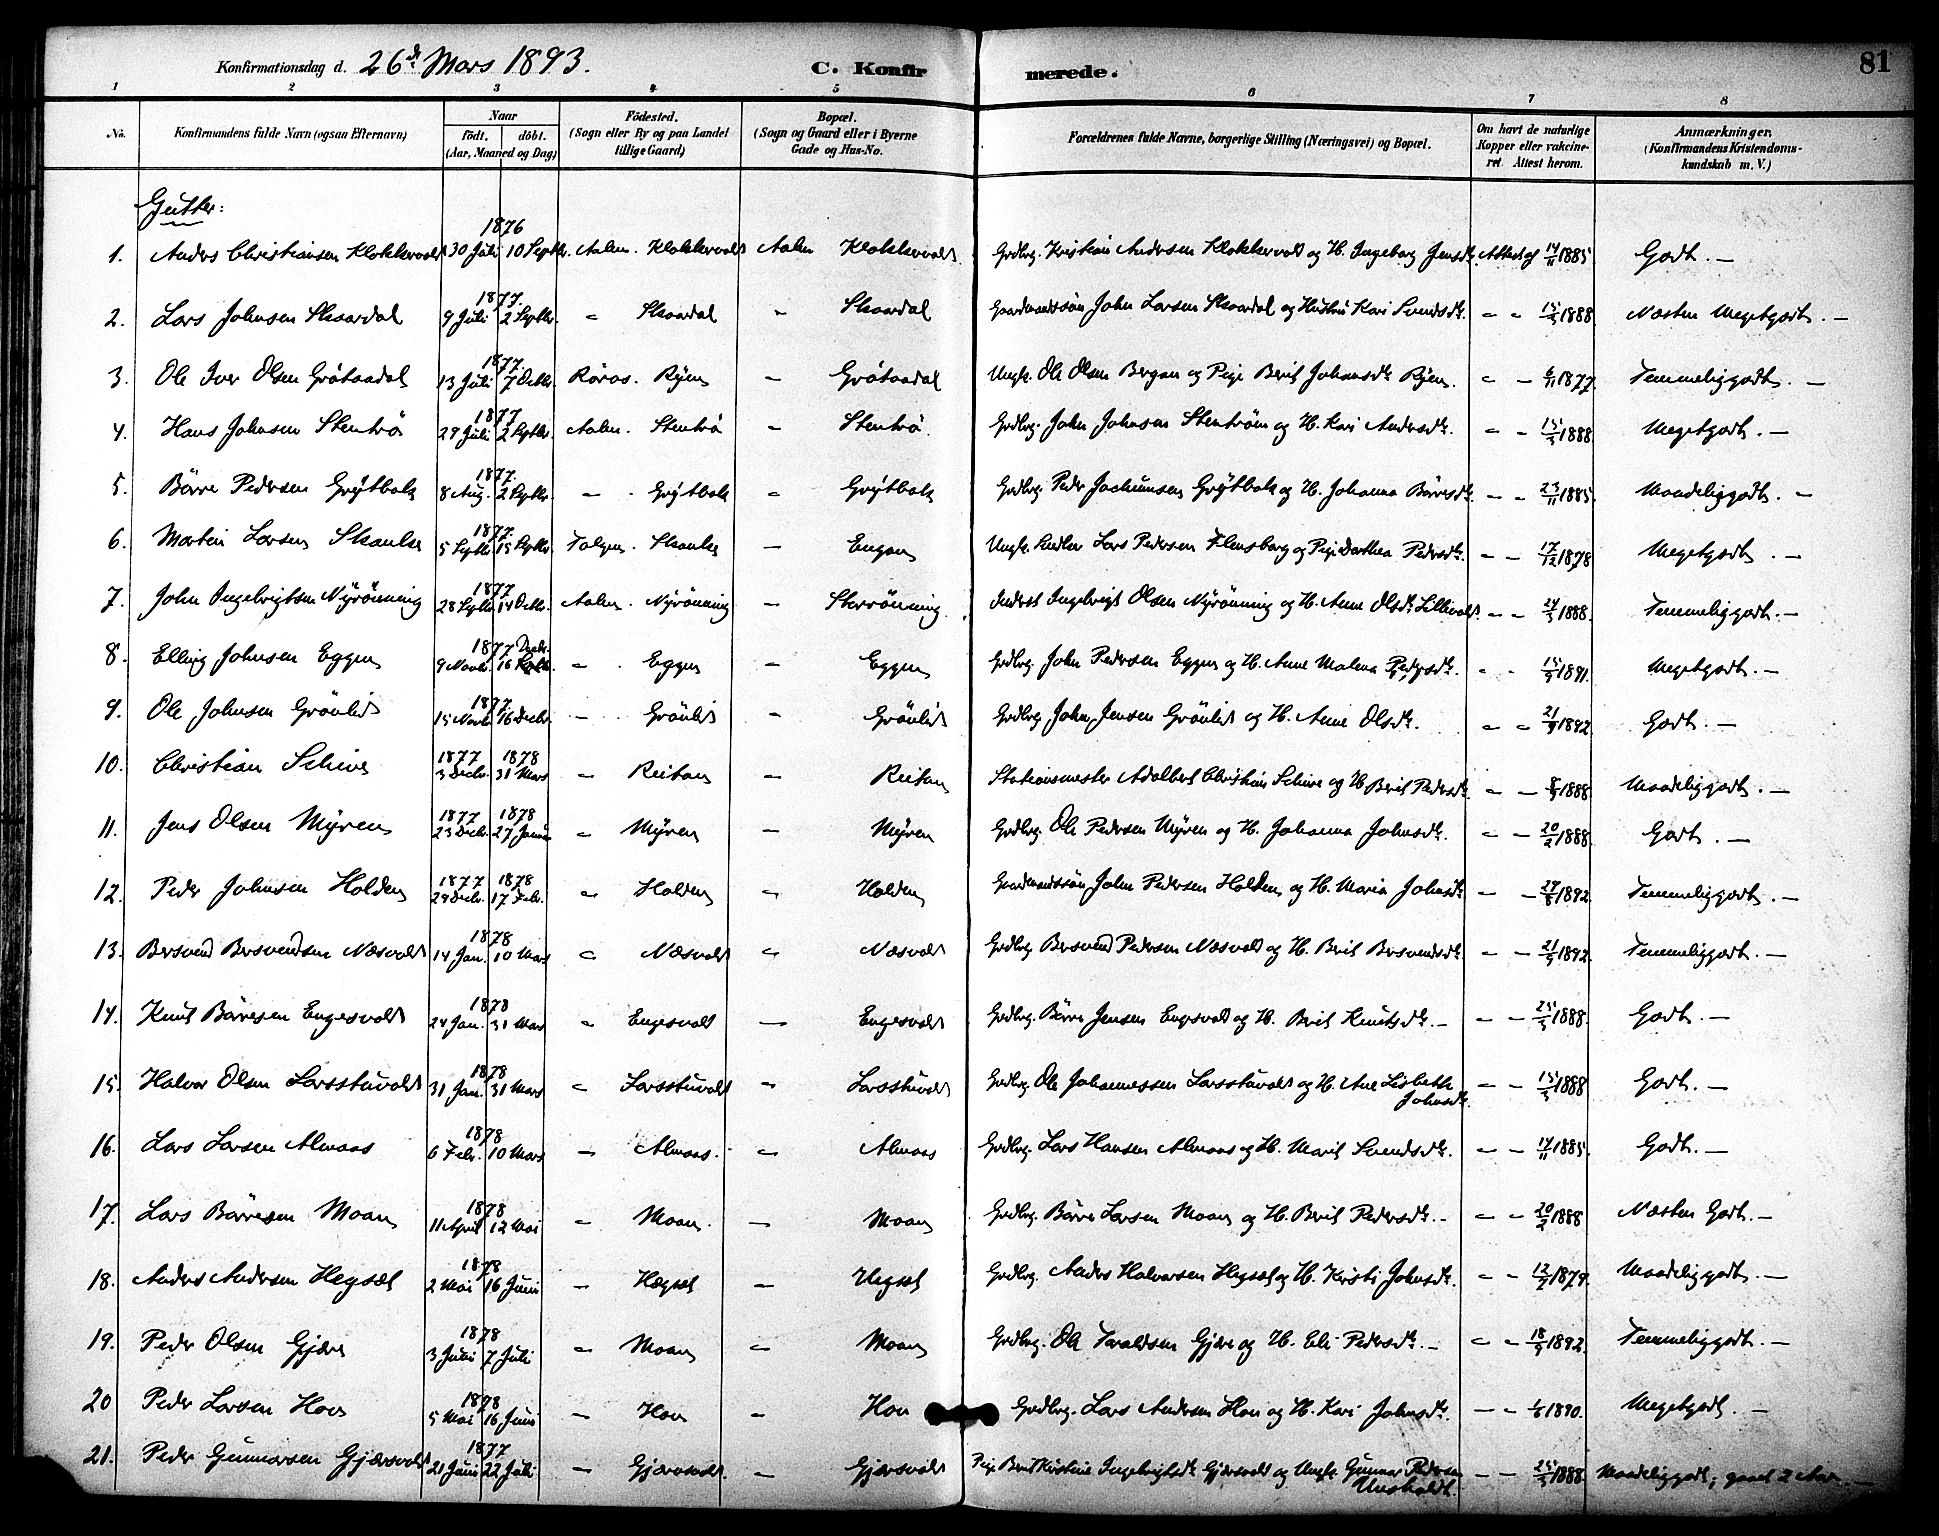 Konfirmationsdag d. 26de Mars 1893. C. Konfirmerede. 81
1 2 3 4 5 6 7 8
No. Konfirmandens fulde Navn (ogsaa Efternavn) Naar födt. döbt. (Aar, Maaned og Dag) Födested. (Sogn eller By og paa Landet tillige Gaard) Bopæl. (Sogn og Gaard eller i Byerne Gade og Hus-No. Forældrenes fulde Navne, borgerlige Stilling (Næringsvei) og Bopæl. Om havt de naturlige Kopper eller vakcineret. Attest herom. Anmærkninger. (Konfirmandens Kristendomskundskab m. V.)
Gutter:
1. Anders Christiansen Klokkervold 1876 30 Juli 10 Septbr. Aalen. Klokkervold Aalen Klokkervold Grdbrg. Kristian Andersen Klokkervold og H. Ingeborg Jensdtr. Attest af 14/11 1885 Godt. —
2. Lars Johnsen Skaardal 1877. 9 Juli 2 Septbr. - Skaardal - Skaardal Gaardmandssön John Larsen Skaardal og Hustru Kari Svendsdtr. - - 15/3 1888 Næsten Megetgodt. —
3. Ole Iver Olsen Grötaadal 1877. 13 Juli 7 Octbr. Röraas. Ryen - Grötaadal Ungk. Ole Olsen Bergan og Pige Berit Johansdtr. Ryen. - - 6/11 1877 Temmeliggodt. —
4. Hans Johnsen Stentrö 1877 29 Juli 2 Septbr. Aalen. Stentrö - Stentrö. Grdbrg. John Johnsen Stentröen og H. Kari Andersdtr. - - 15/3 1888 Megetgodt. —
5. Börre Pedersen Grytbak 1877. 8 Aug. 2 Septbr. - Grytbak - Grytbak Grdbrg. Peder Jochumsen Grytbak og H. Johanna Börresdtr. - - 23/11 1885. Maadeliggodt. —
6. Martin Larsen Skanke 1877. 5 Septbr. 15 Septbr. Tolgen. Skanke - Engan Ungk. Lars Pedersen Flensborg og Pige Dorthea Pedersdtr. - - 17/12 1878 Megetgodt. —
7. John Ingebrigtsen Nyrönning 1877 28 Septbr. 14 Octbr. Aalen. Nyrönning - Storrönning. Inderst Ingebrigt Olsen Nyrönning og H. Anne Olsdtr. Lillevold - - 24/3 1888. Temmeliggodt. —
8. Elling Johnsen Eggen 1877 9 Novbr. 16 Decbr. - Eggen - Eggen Grdbrg. John Pedersen Eggen og H. Anne Malena Pedersdtr. - - 15/9 1891. Megetgodt. —
9. Ole Johnsen Grönlid 1877. 15 Novbr. 16 Decbr. - Grönlid - Grönlid Grdbrg. John Jensen Grönlid og H. Anne Olsdtr. - - 21/9 1892 Godt. —
10. Christian Schive 1877 3 Decbr. 1878 31 Mars - Reitan - Reitan Stationsmester Adalbert Christian Schive og H. Berit Pedersdtr. - - 1888 Maadeliggodt. —
11. Jens Olsen Myren 1877 23 Decbr. 1878 27 Januar - Myren - Myren Grdbrg. Ole Pedersen Myren og H. Johanna Johnsdtr. - - 20/2 1888. Godt. —
12. Peder Johnsen Holden 1877 29 Decbr. 1878 17 Febr. - Holden - Holden Gaardmandssön John Pedersen Holden og H. Maria Johnsdtr. - - 27/8 1892. Temmeliggodt. —
13. Bersvend Bersvendsen Næsvold 1878 14 Jan. 10 Mars - Næsvold - Næsvold Grdbrg. Bersvend Pedersen Næsvold og H. Berit Bersvendsdtr. - - 21/9 1892. Temmeliggodt. —
14. Knut Börresen Engesvold 1878 24 Jan. 31 Mars - Engesvold - Engesvold Grdbrg. Börre Jensen Engesvold og H. Berit Knutsdtr. - - - 25/3 1888. Godt. —
15. Halvor Olsen Larsstuvold 1878 31 Jan. 31 Mars - Larsstuvold - Larsstuvold Grdbrg. Ole Johannessen Larsstuvold og H. Ane Lisbeth Johnsdtr. - - 15/3 1888 Godt. —
16. Lars Larsen Almaas 1878 6 Febr. 10 Mars - Almaas. - Almaas Grdbrg. Lars Hansen Almaas og H. Marit Svendsdtr. - - 17/11 1885. Godt. —
17. Lars Börresen Moan 1878 11 April 12 Mai - Moan. - Moan Grdbrg. Börre Larsen Moan og H. Berit Pedersdtr. - - - 20/2 1888 Næsten Godt. —
18. Anders Andersen Hegset 1878 2 Mai 16 Juni - Hegset - Hegset Grdbrg. Anders Halvorsen Hegset og H. Kristi Johnsdtr. - - 12/7 1879. Maadeliggodt. —
19. Peder Olsen Gjære 1878 3 Juni 7 Juli - Moan - Moan Grdbrg. Ole Taraldsen Gjære og H. Eli Pedersdtr. - - - 18/9 1892. Temmeliggodt. —
20 Peder Larsen Hov 1878 5 Mai 16 Juni - Hov - Hov Grdbrg. Lars Andersen Hov og H. Kari Johnsdtr. - - 1890. Megetgodt. —
21. Peder Gunnarsen Gjærsvold 1877 21 Juni 22 Juli - Gjærsvold. - Gjærsvold Pige Berit Kristine Ingebrigtsdtr. Gjærsvold og Ungk. Gunnar Pedersen Unsholdt. - - 25/3 1888 Maadeliggodt; gaaet 2 Aar. —